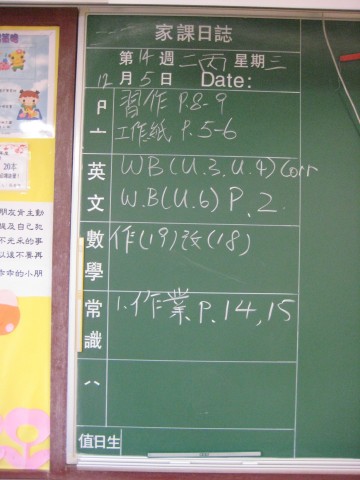 家課日誌
第14週二丙星期三
12月5日Date:
習作 P.8-9
工作紙 P.5-6
英文
WB(U.3,U.4)Corr
W.B(U.6) P.2
數學
作(19)改(18)
常識
1.作業 P.14,15
值日生
20本
朋友會主動
及自己犯
不光采的事
以這不要再
命命的小朋